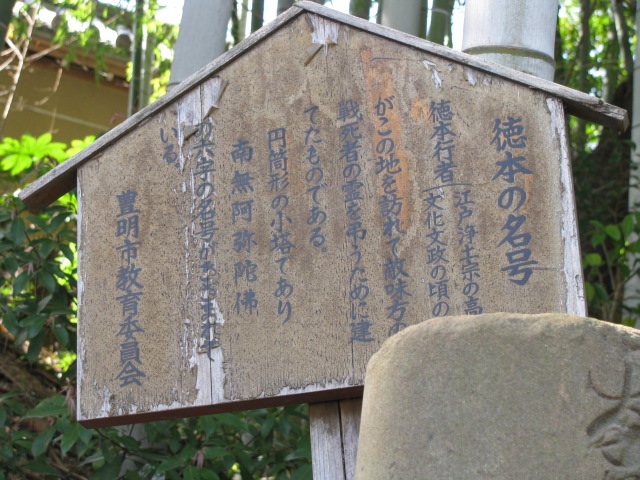 徳本の名号
徳本行者
江戸浄土宗の高
文化文政の頃の
がこの地を訪れて敵味方の
戦死者の霊を弔うために建
てたものである。
円筒形の小塔であり
南無阿弥陀佛
の六字の名号がきざまれて
いる。
豊明市教育委員会